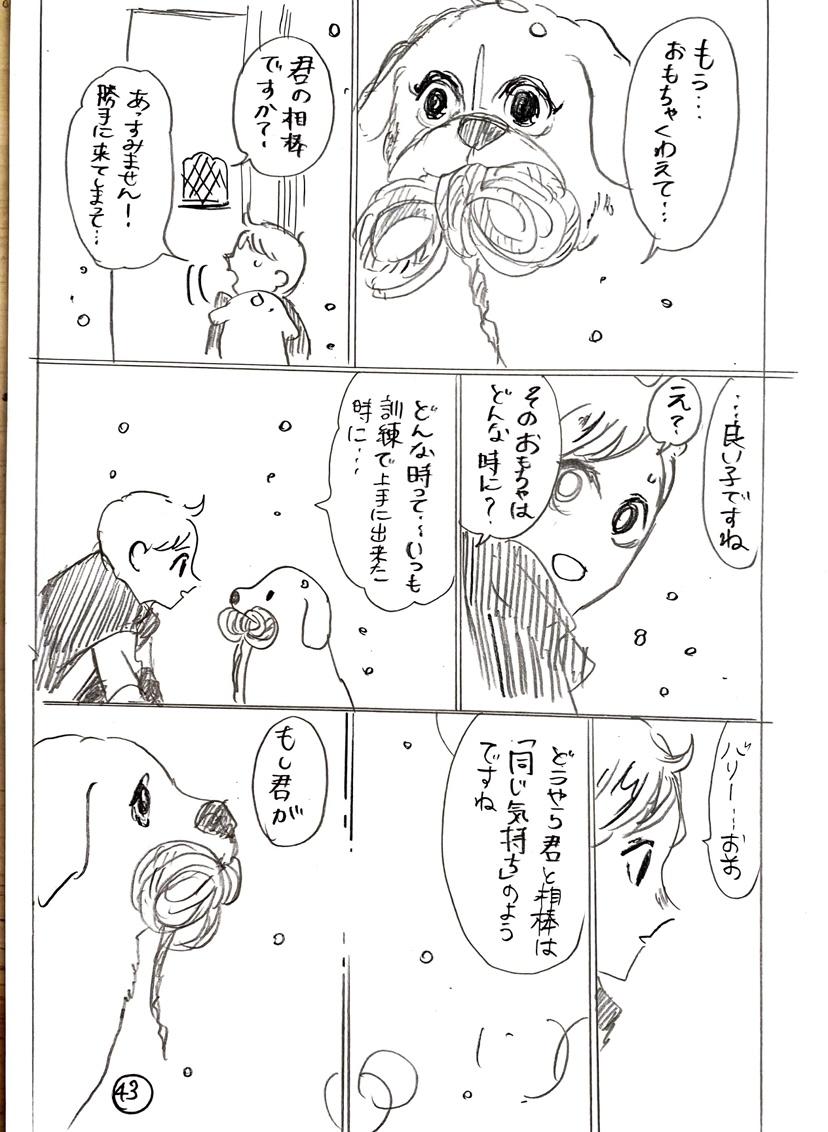 もう…
おもちゃくわえて…
君の相棒
ですか？
あっすみません！
勝手に来てしまって…
…良い子ですね
え？
そのおもちゃは
どんな時に？
どんな時って…いつも
訓練で上手に出来た
時に…
バリー…お前
どうやら君と相棒は
「同じ気持ち」のよう
ですね
もし君が
43